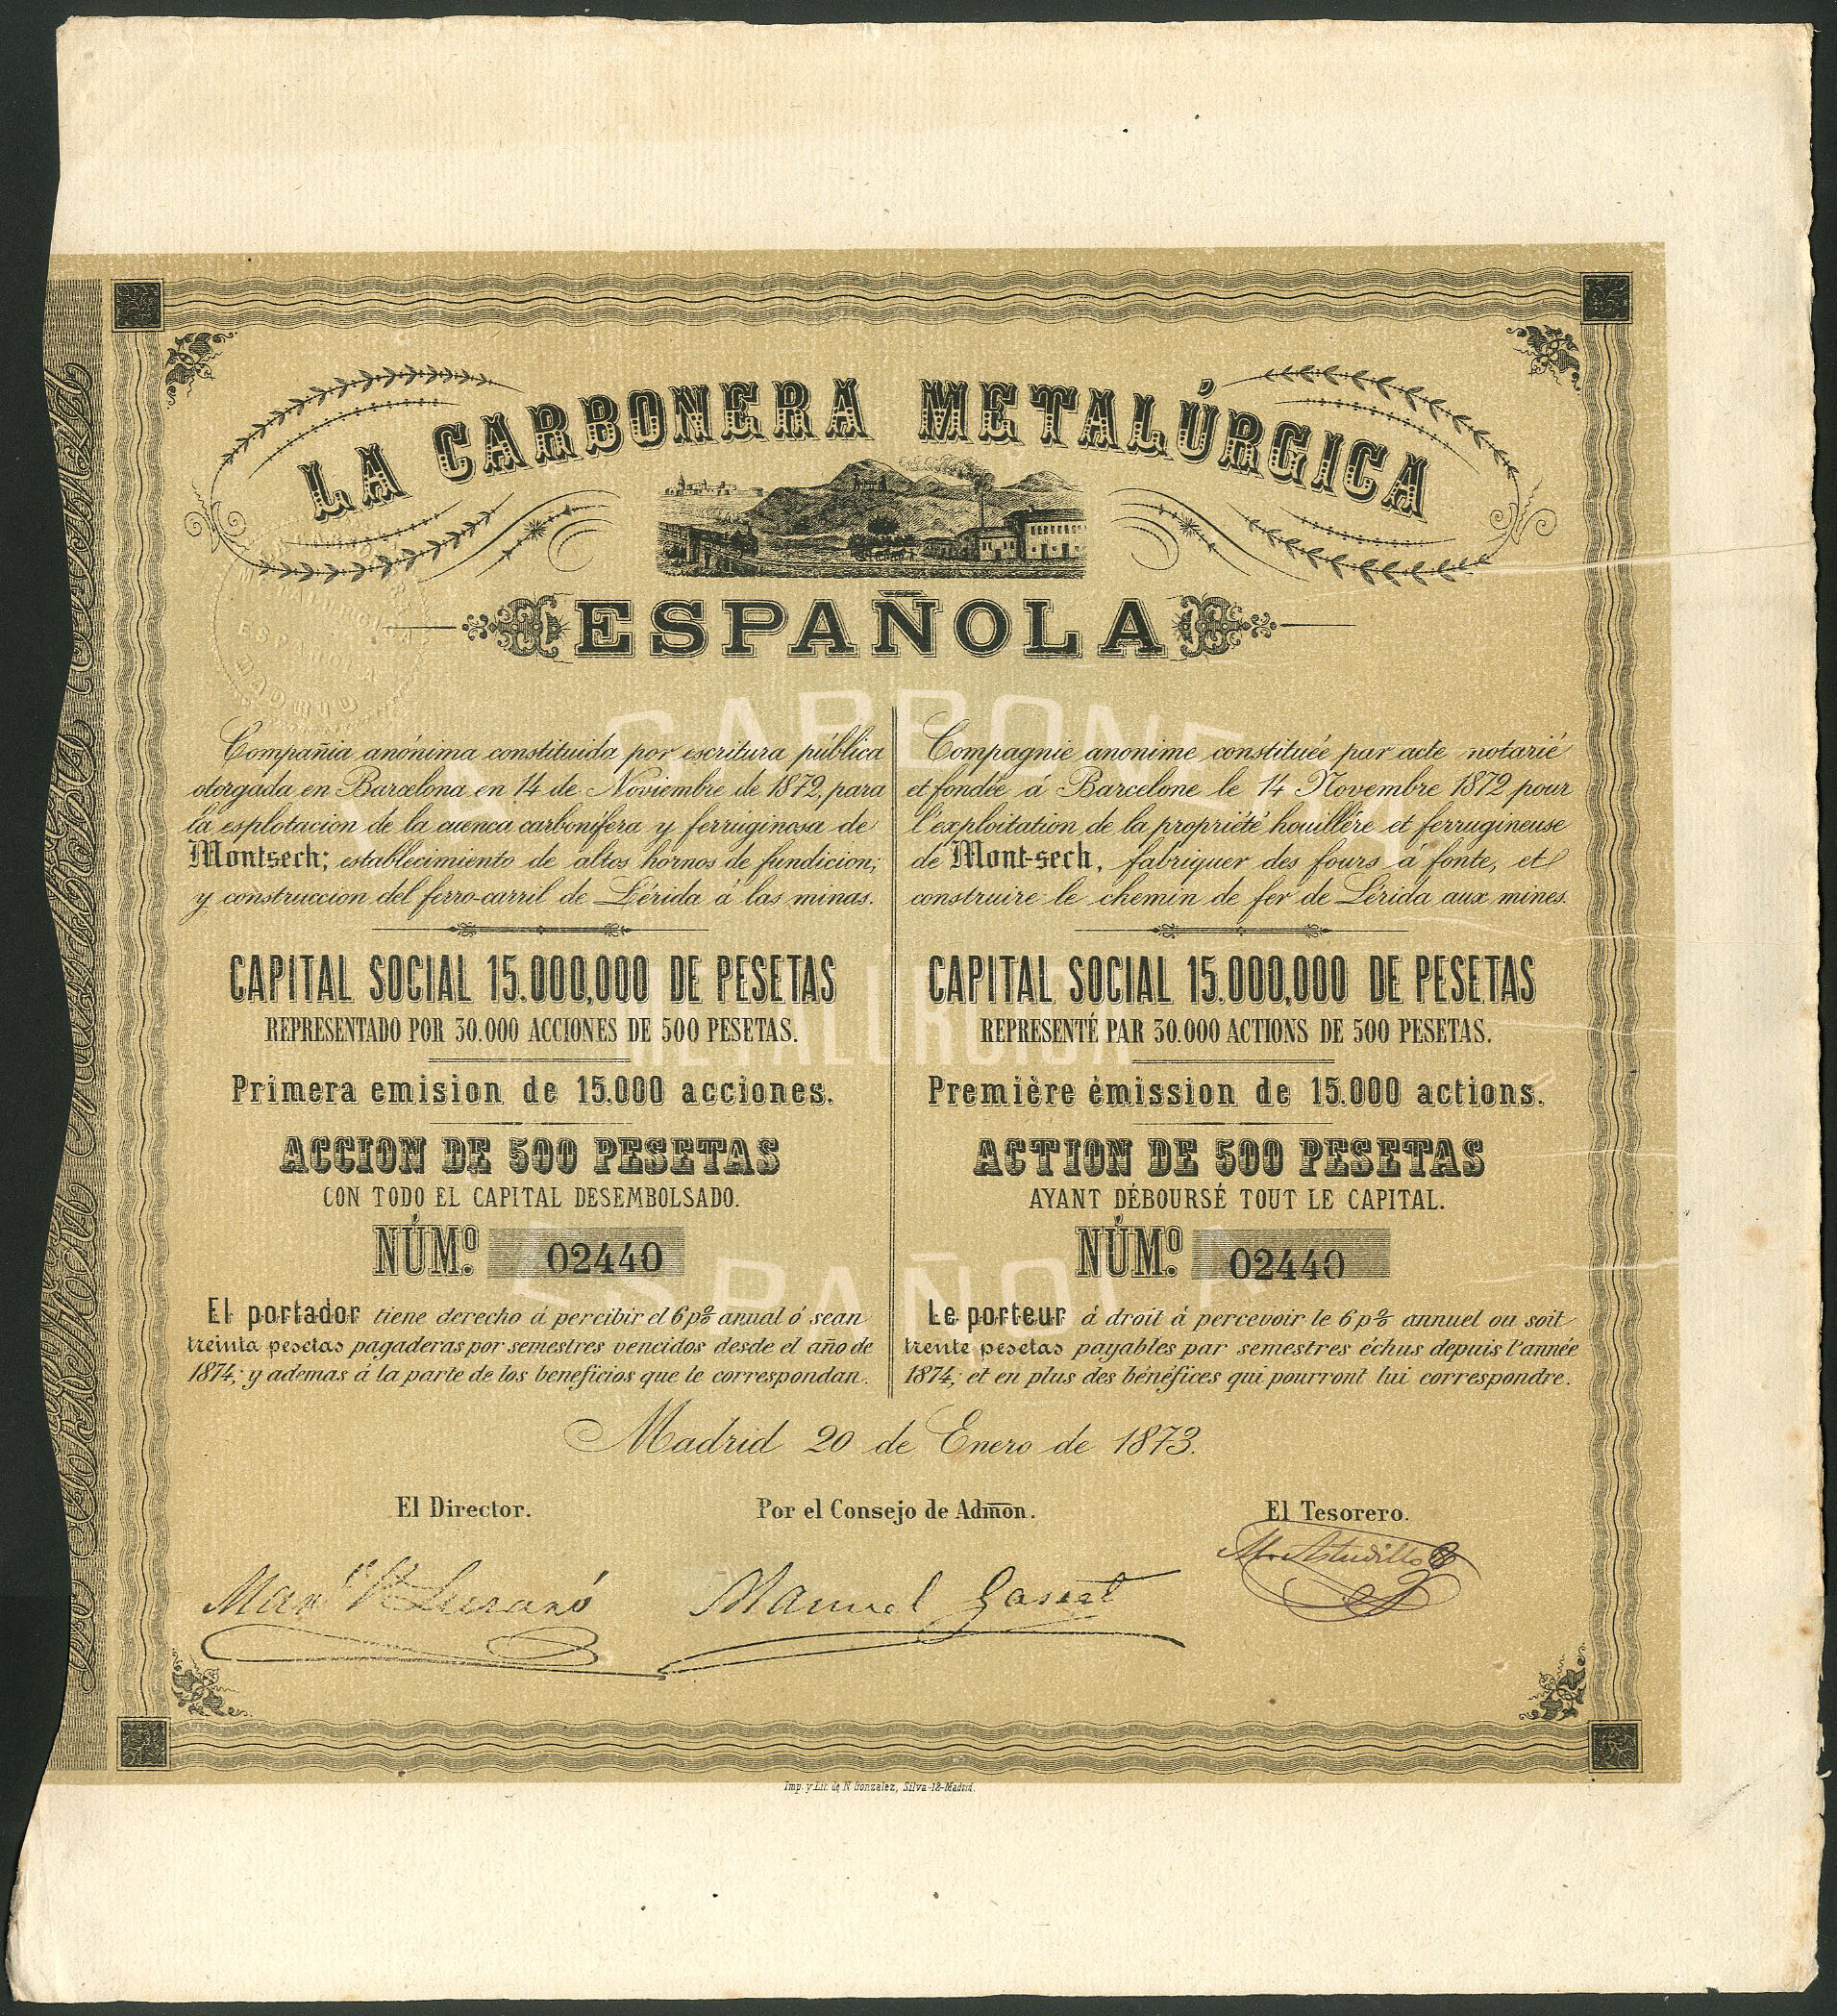 LA CARBONERA METALÚRGICA
ESPAÑOLA
LA CARBONERA
METALURGICA
ESPAÑOLA
MADRID
Compañia anónima constituida por escritura pública
otorgada en Barcelona en 14 de Noviembre de 1872, para
la esplotacion de la cuenca carbonífera y ferruginosa de
Montsech; establecimiento de altos hornos de fundicion;
y construccion del ferro-carril de Lérida á las minas.
CAPITAL SOCIAL 15.000,000 DE PESETAS
REPRESENTADO POR 30.000 ACCIONES DE 500 PESETAS.
Primera emision de 15.000 acciones.
ACCION DE 500 PESETAS
CON TODO EL CAPITAL DESEMBOLSADO.
NÚMº. 02440
El portador tiene derecho á percibir el 6 p% annual ó sean
treinta pesetas pagaderas por semestres vencidos desde el año de
1874; y ademas á la parte de los beneficios que le correspondan.
Compagnie anonime constituée par acte notarié
et fondée á Barcelone le 14 Novembre 1872 pour
l'exploitation de la propriété houillére et ferrugineuse
de Mont-sech, fabriquer des fours á fonte, et
construire le chemin de fer de Lérida aux mines.
CAPITAL SOCIAL 15.000,000 DE PESETAS
REPRESENTÉ PAR 30.000 ACTIONS DE 500 PESETAS.
Première émission de 15.000 actions.
ACTION DE 500 PESETAS
AYANT DÉBOURSÉ TOUT LE CAPITAL.
NÚMº. 02440
Le porteur á droit á percevoir le 6 p% annuel ou soit
trente pesetas payables par semestres échus depuis l'année
1874; et en plus des bénéfices qui pourront lui correspondre.
LA CARBONERA
METALURGICA
ESPAÑOLA
Madrid 20 de Enero de 1873.
El Director.
Por el Consejo de Admon.
El Tesorero.
Manuel Gasset
M. Astudillo
Imp. y Lit. de N. Gonzalez, Silva-12-Madrid.